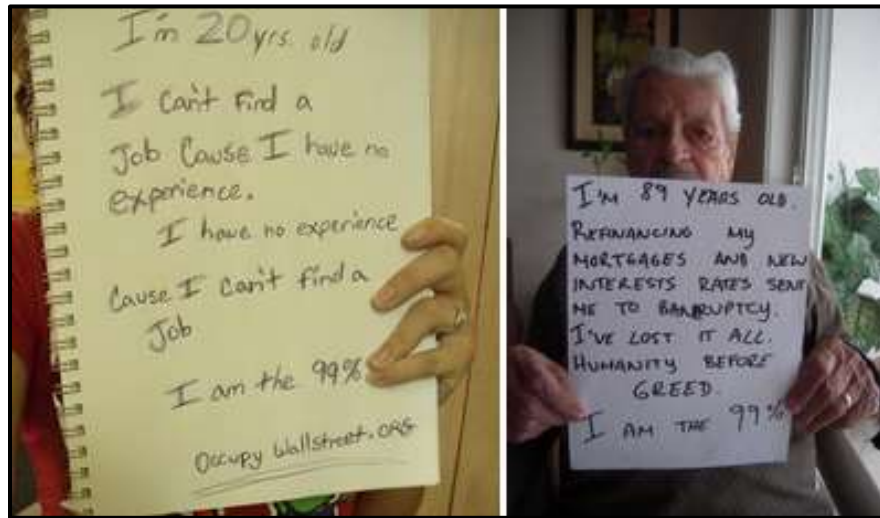 I'm 20 yrs. old
I can't find a
Job Cause I have no
experience.
I have no experience
Cause I can't find a
Job
I am the 99%
Occupy Wallstreet.ORG
I'M 89 YEARS OLD.
REFINANCING MY
MORTGAGES AND NEW
INTERESTS RATES SENT
ME TO BANKRUPTCY.
I'VE LOST IT ALL.
HUMANITY BEFORE
GREED.
I AM THE 99%